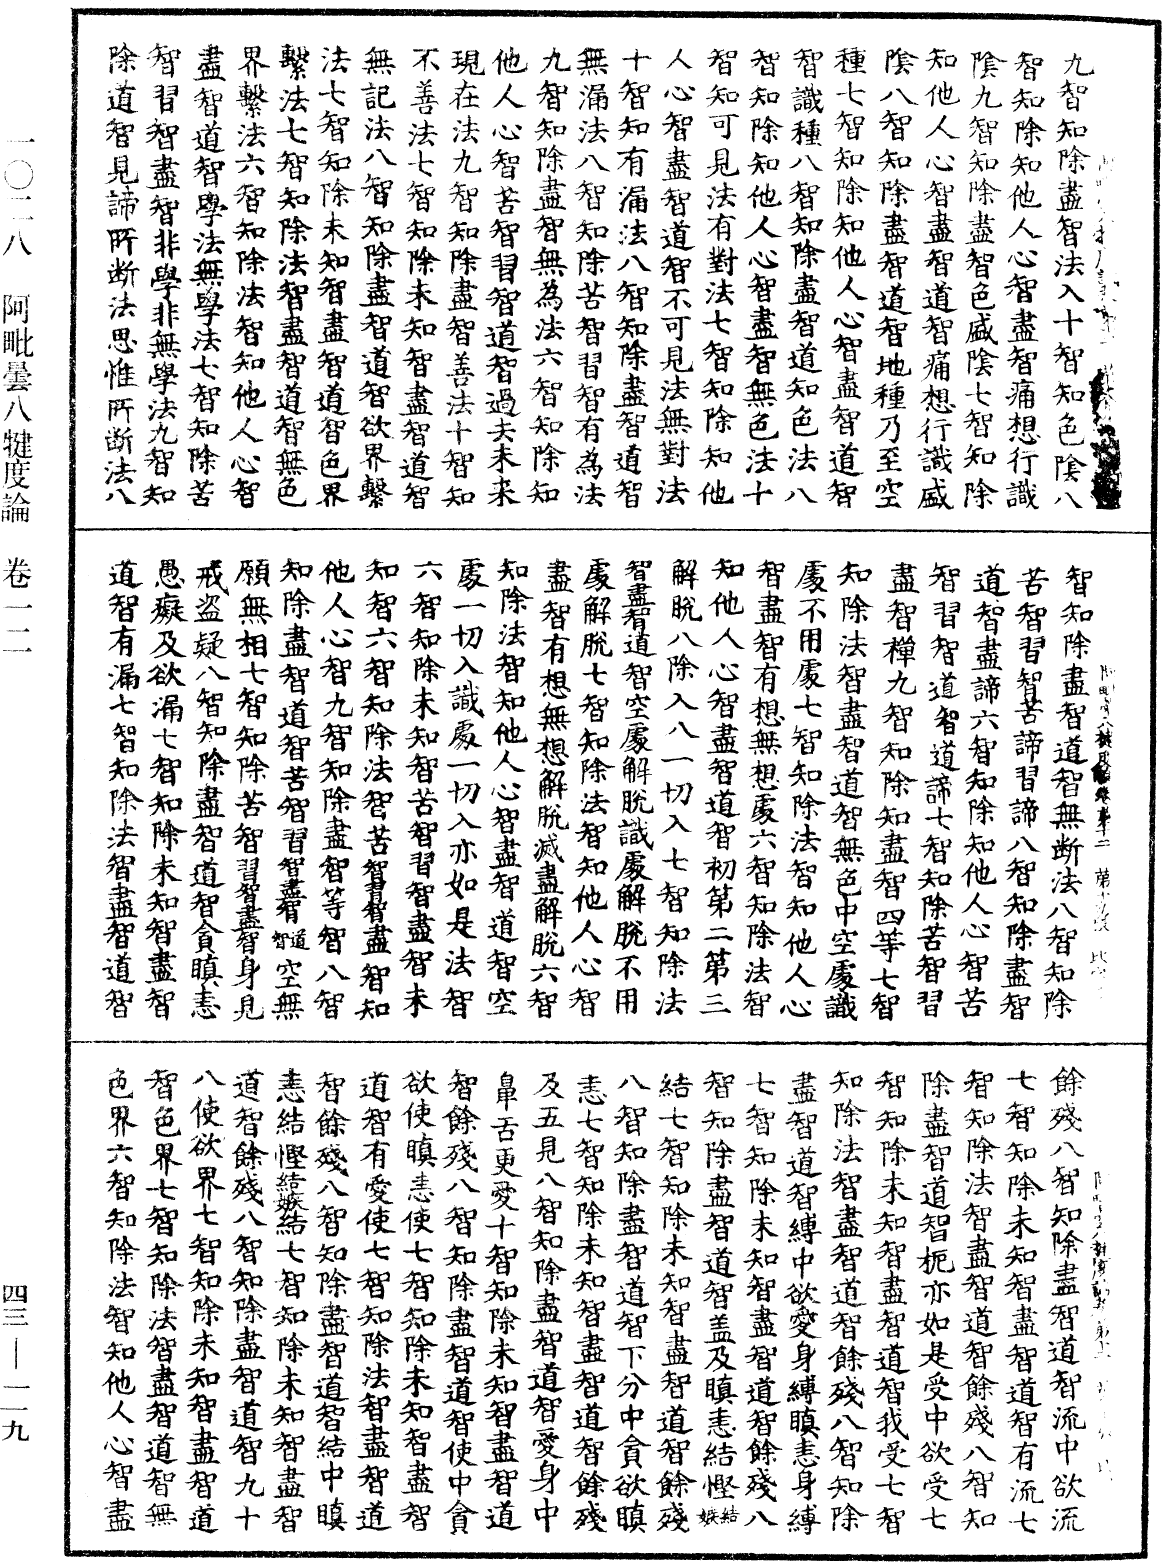 九智知除盡智法入十智知色陰八
智知除知他人心智盡智痛想行識
陰九智知除盡智色盛陰七智知除
知他人心智盡智道智痛想行識盛
陰八智知除盡智道智地種乃至空
種七智知除知他人心智盡智道智
智識種八智知除盡智道知色法八
智知除知他人心智盡智無色法十
智知可見法有對法七智知除知他
人心智盡智道智不可見法無對法
十智知有漏法八智知除盡智道智
無漏法八智知除苦智習智有為法
九智知除盡智無為法六智知除知
他人心智苦智習智道智過去未来
現在法九智知除盡智善法十智知
不善法七智知除未知智盡智道智
無記法八智知除盡智道智欲界繫
法七智知除未知智盡智道智色界
繫法七智知除法智盡智道智無色
界繫法六智知除法智知他人心智
盡智道智學法無學法七智知除苦
智習智盡智非學非無學法九智知
除道智見諦所断法思惟所断法八
智知除盡智道智無断法八智知除
苦智習智苦諦習諦八智知除盡智
道智盡諦六智知除知他人心智苦
智習智道智道諦七智知除苦智習
盡智禪九智知除知盡智四等七智
知除法智盡智道智無色中空處識
處不用處七智知除法智知他人心
智盡智有想無想處六智知除法智
知他人心智盡智道智初第二第三
解脫八除入八一切入七智知除法
智盡智道智空處解脫識處解脫不用
處解脫七智知除法智知他人心智
盡智有想無想解脫滅盡解脫六智
知除法智知他人心智盡智道智空
處一切入識處一切入亦如是法智
六智知除未知智苦智習智盡智未
知智六智知除法智苦智習智盡智知
他人心智九智知除盡智等智八智
知除盡智道智苦智習智盡智道智空無
願無相七智知除苦智習智盡智身見
戒盗疑八智知除盡智道智貪瞋恚
愚癡及欲漏七智知除未知智盡智
道智有漏七智知除法智盡智道智
餘殘八智知除盡智道智流中欲流
七智知除未知智盡智道智有流七
智知除法智盡智道智餘殘八智知
除盡智道智扼亦如是受中欲受七
智知除未知智盡智道智我受七智
知除法智盡智道智餘殘八智知除
盡智道智縛中欲愛身縛瞋恚身縛
七智知除未知智盡智道智餘殘八
智知除盡智道智盖及瞋恚結慳結嫉
結七智知除未知智盡智道智餘殘
八智知除盡智道智下分中貪欲瞋
恚七智知除未知智盡智道智餘殘
及五見八智知除盡智道智愛身中
鼻舌更愛十智知除未知智盡智道
智餘殘八智知除盡智道智使中貪
欲使瞋恚使七智知除未知智盡智
道智有愛使七智知除法智盡智道
智餘殘八智知除盡智道智結中瞋
恚結慳結嫉結七智知除未知智盡智
道智餘殘八智知除盡智道智九十
八使欲界七智知除未知智盡智道
智色界七智知除法智盡智道智無
色界六智知除法智知他人心智盡
一〇二八 阿毗曇八犍度論 卷一二
四三—一一九